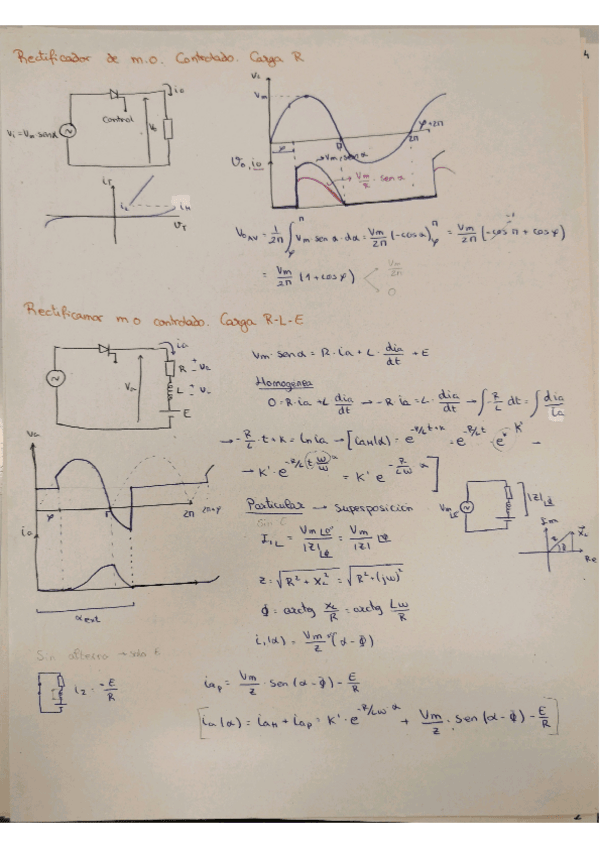 4
Rectificador de m.o. Controlado. Carga R
Vi = Vm senα
Control
io
Vo
Vi
Vm
φ
π
2π
φ+2π
Vo, io
Vm·sen α
Vm/R · sen α
iT
iL
iH
VT
VoAV = 1/2π ∫φ^π Vm·sen α·dα = Vm/2π (-cos α)φ^π = Vm/2π (-cos π + cos φ)
= Vm/2π (1+cos φ) < Vm/2π
0
Rectificamor m o controlado. Carga R-L-E
ia
Va
R
L
E
Vm·senα = R·ia + L·dia/dt + E
Homogénea
0 = R·ia + L dia/dt → -R ia = L·dia/dt → ∫-R/L dt = ∫dia/ia
→ -R/L·t+K = ln ia → [iaH(α) = e^(-R/L t+K) = e^(-R/L t)·e^K K'
→ K'·e^(-R/L t w/w) α = K' e^(-R/Lw α)]
Particular → superposición
Sin E
I1L = Vm∟0°/|Z|∟φ = Vm/|Z| ∟φ
Z = √R²+XL² = √R²+(jw)²
ϕ = arctg XL/R = arctg Lw/R
i1(α) = Vm/Z (α-ϕ)
Va
io
φ
π
2π
2π+φ
αext
|Z|∟ϕ
Re
Sin alterna → solo E
i2 = -E/R
iap = Vm/Z · sen(α-ϕ) - E/R
[ia(α) = iaH + iap = K'·e^(-R/Lw α) + Vm/Z · sen(α-ϕ) - E/R]